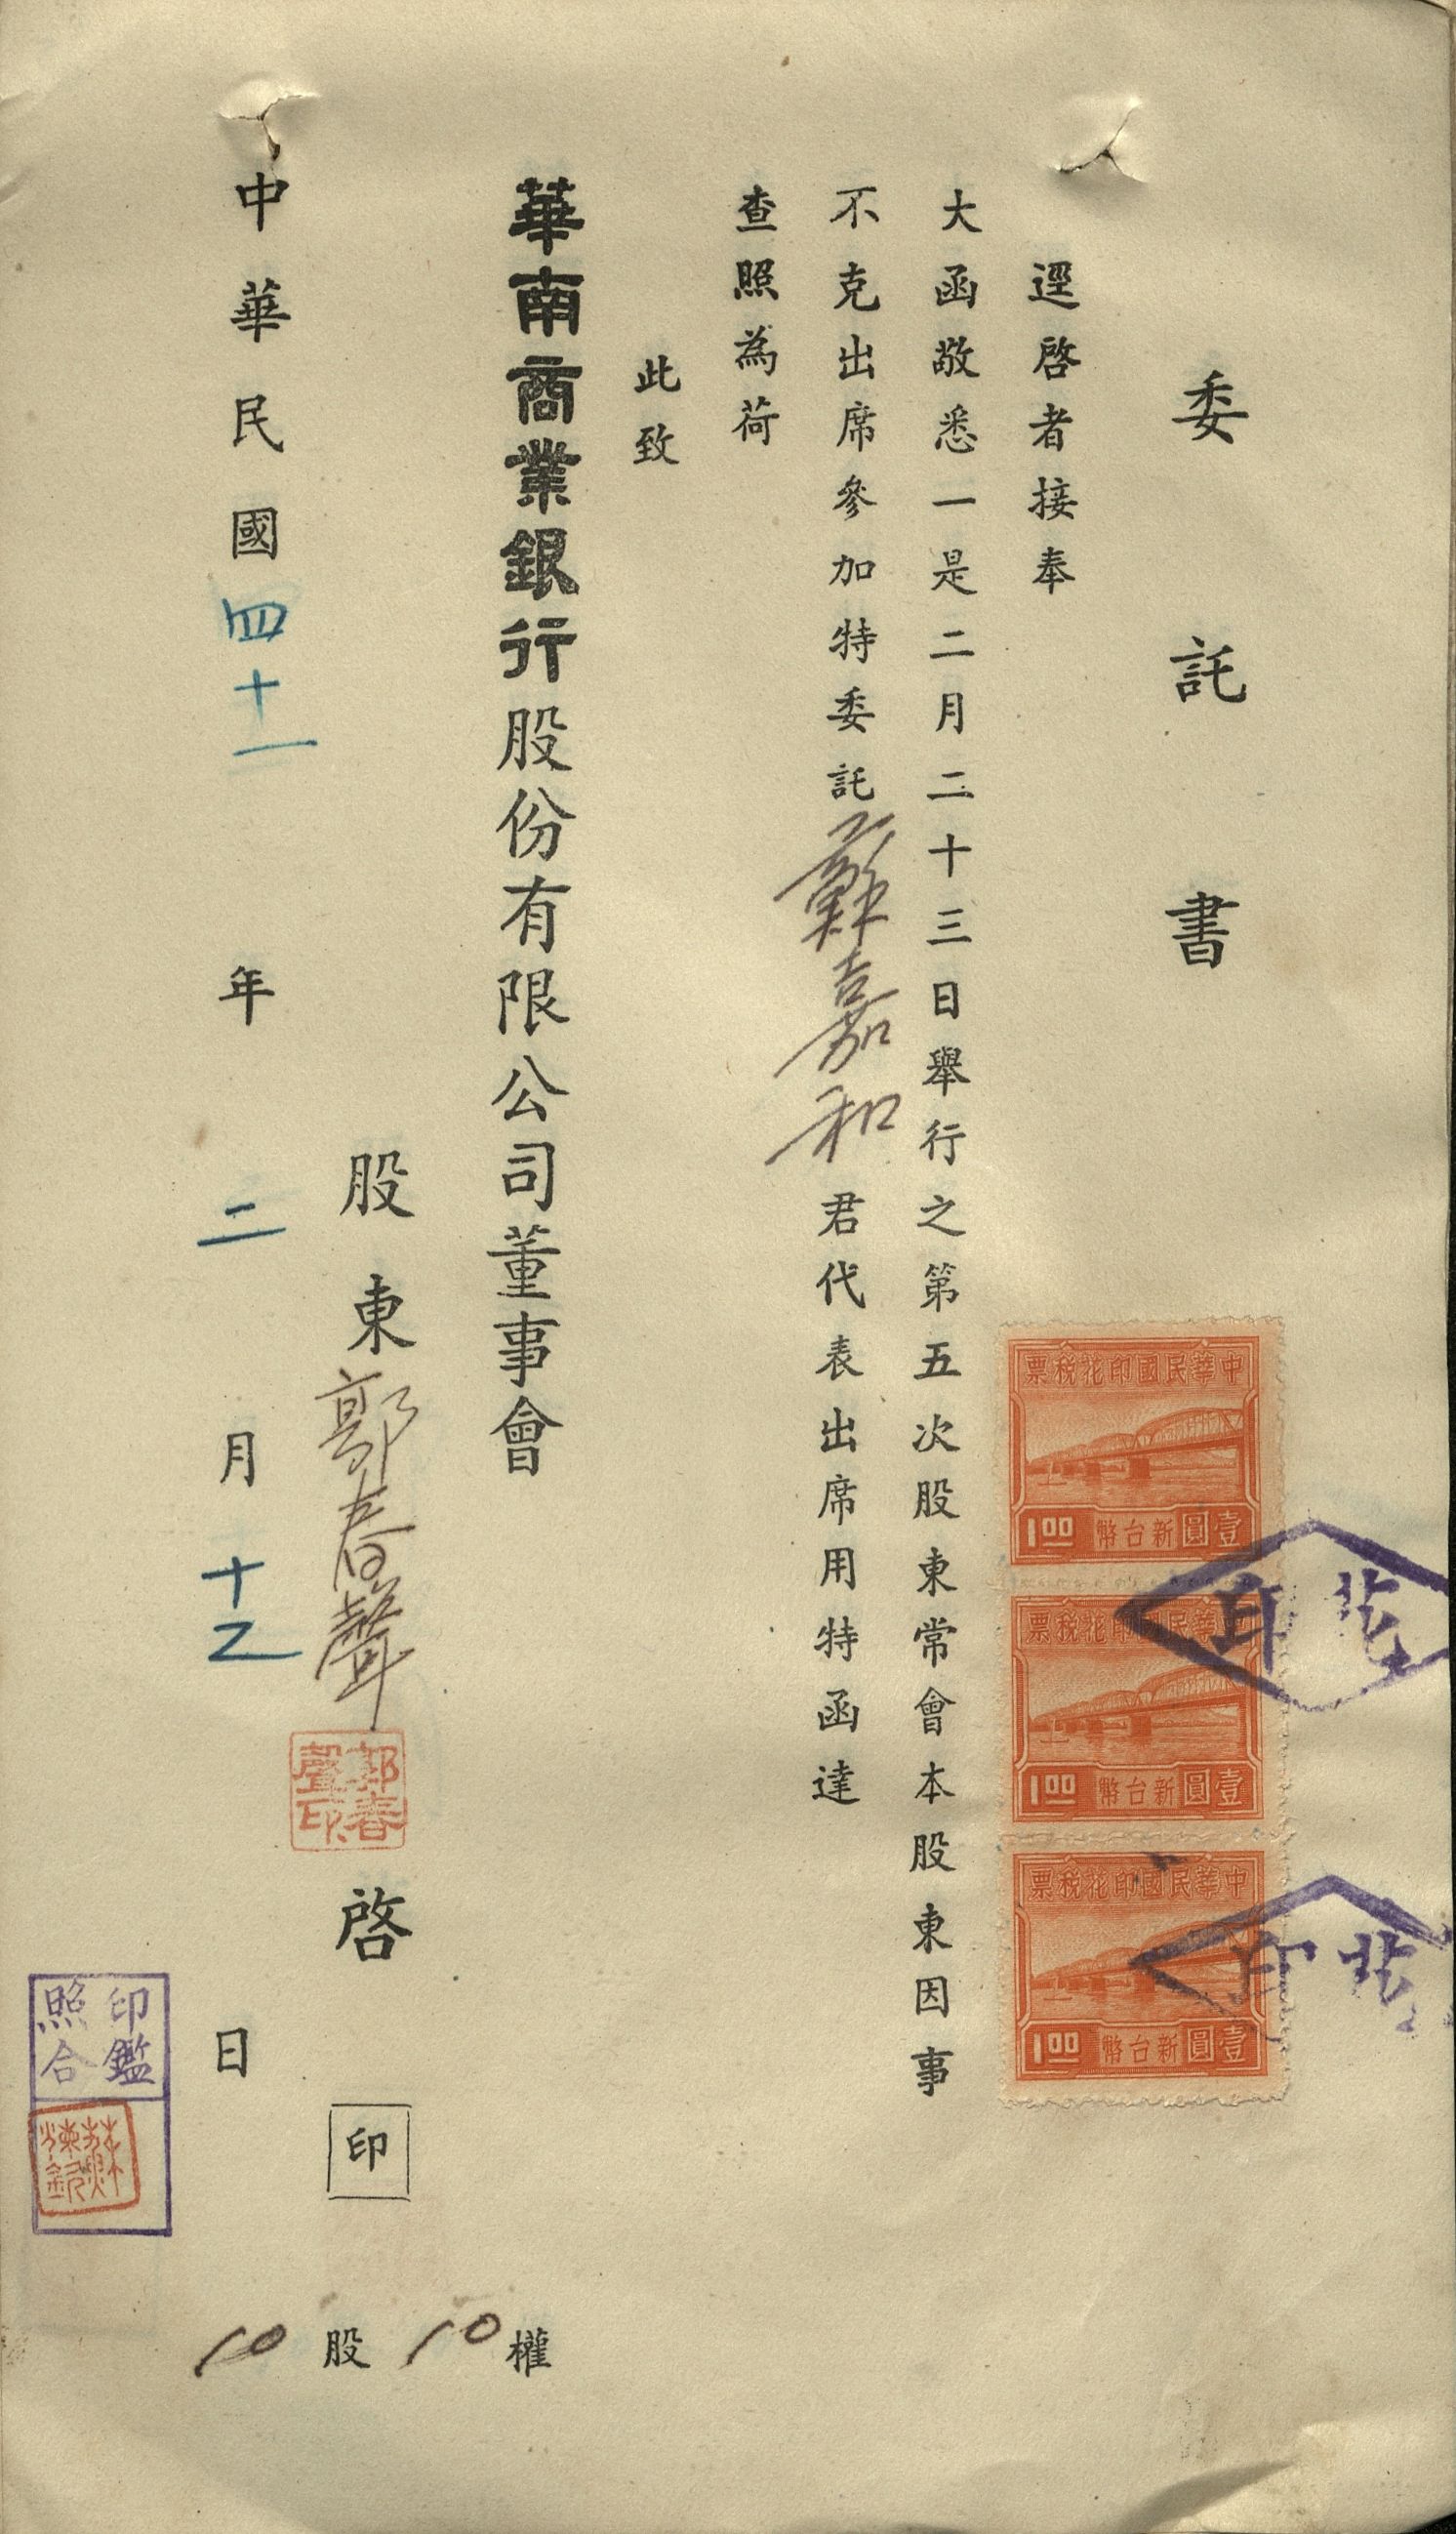 委託書
逕啓者接奉
大函敬悉一是二月二十三日舉行之第五次股東常會本股東因事
不克出席參加特委託蘇嘉和君代表出席用特函達
查照為荷
此致
華南商業銀行股份有限公司董事會
股東郭春聲啓印
郭春聲印
10股10權
中華民國四十一年二月十乙日
印鑑照合
中華民國印花稅票
壹圓新台幣
1.00
中華民國印花稅票
壹圓新台幣
1.00
中華民國印花稅票
壹圓新台幣
1.00
花印
花印